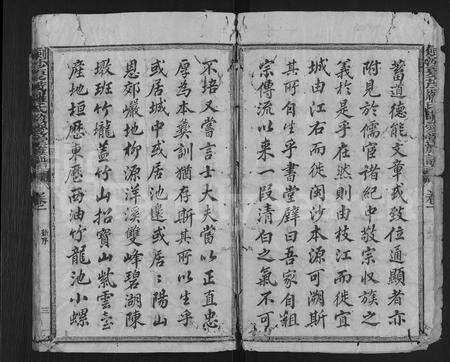 蓄道德能文章或致位通顯者亦
附見於儒宦諸紀中敬宗收族之
義於是乎在然則由枝江而徙宜
城由江右而徙閩沙本源可溯斯
其所自分乎書堂鐸曰吾家自祖
宗傳流以來一段清白之氣不可
不培又嘗言士大夫當以正直忠
厚為本彝訓猶存斯其所以生乎
或居城中或居池遶或居陽山
恩郊巖地柳源洋溪雙峰碧湖陳
墩班竹壠蓋竹山招寶山紫雲臺
產地垣歷東歷西油竹龍池小螺